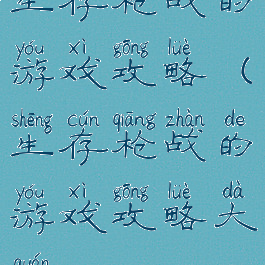 生存枪战的
yóu xì gōng lüè
游戏攻略（
shēng cún qiāng zhàn de
生存枪战的
yóu xì gōng lüè dà
游戏攻略大
quán